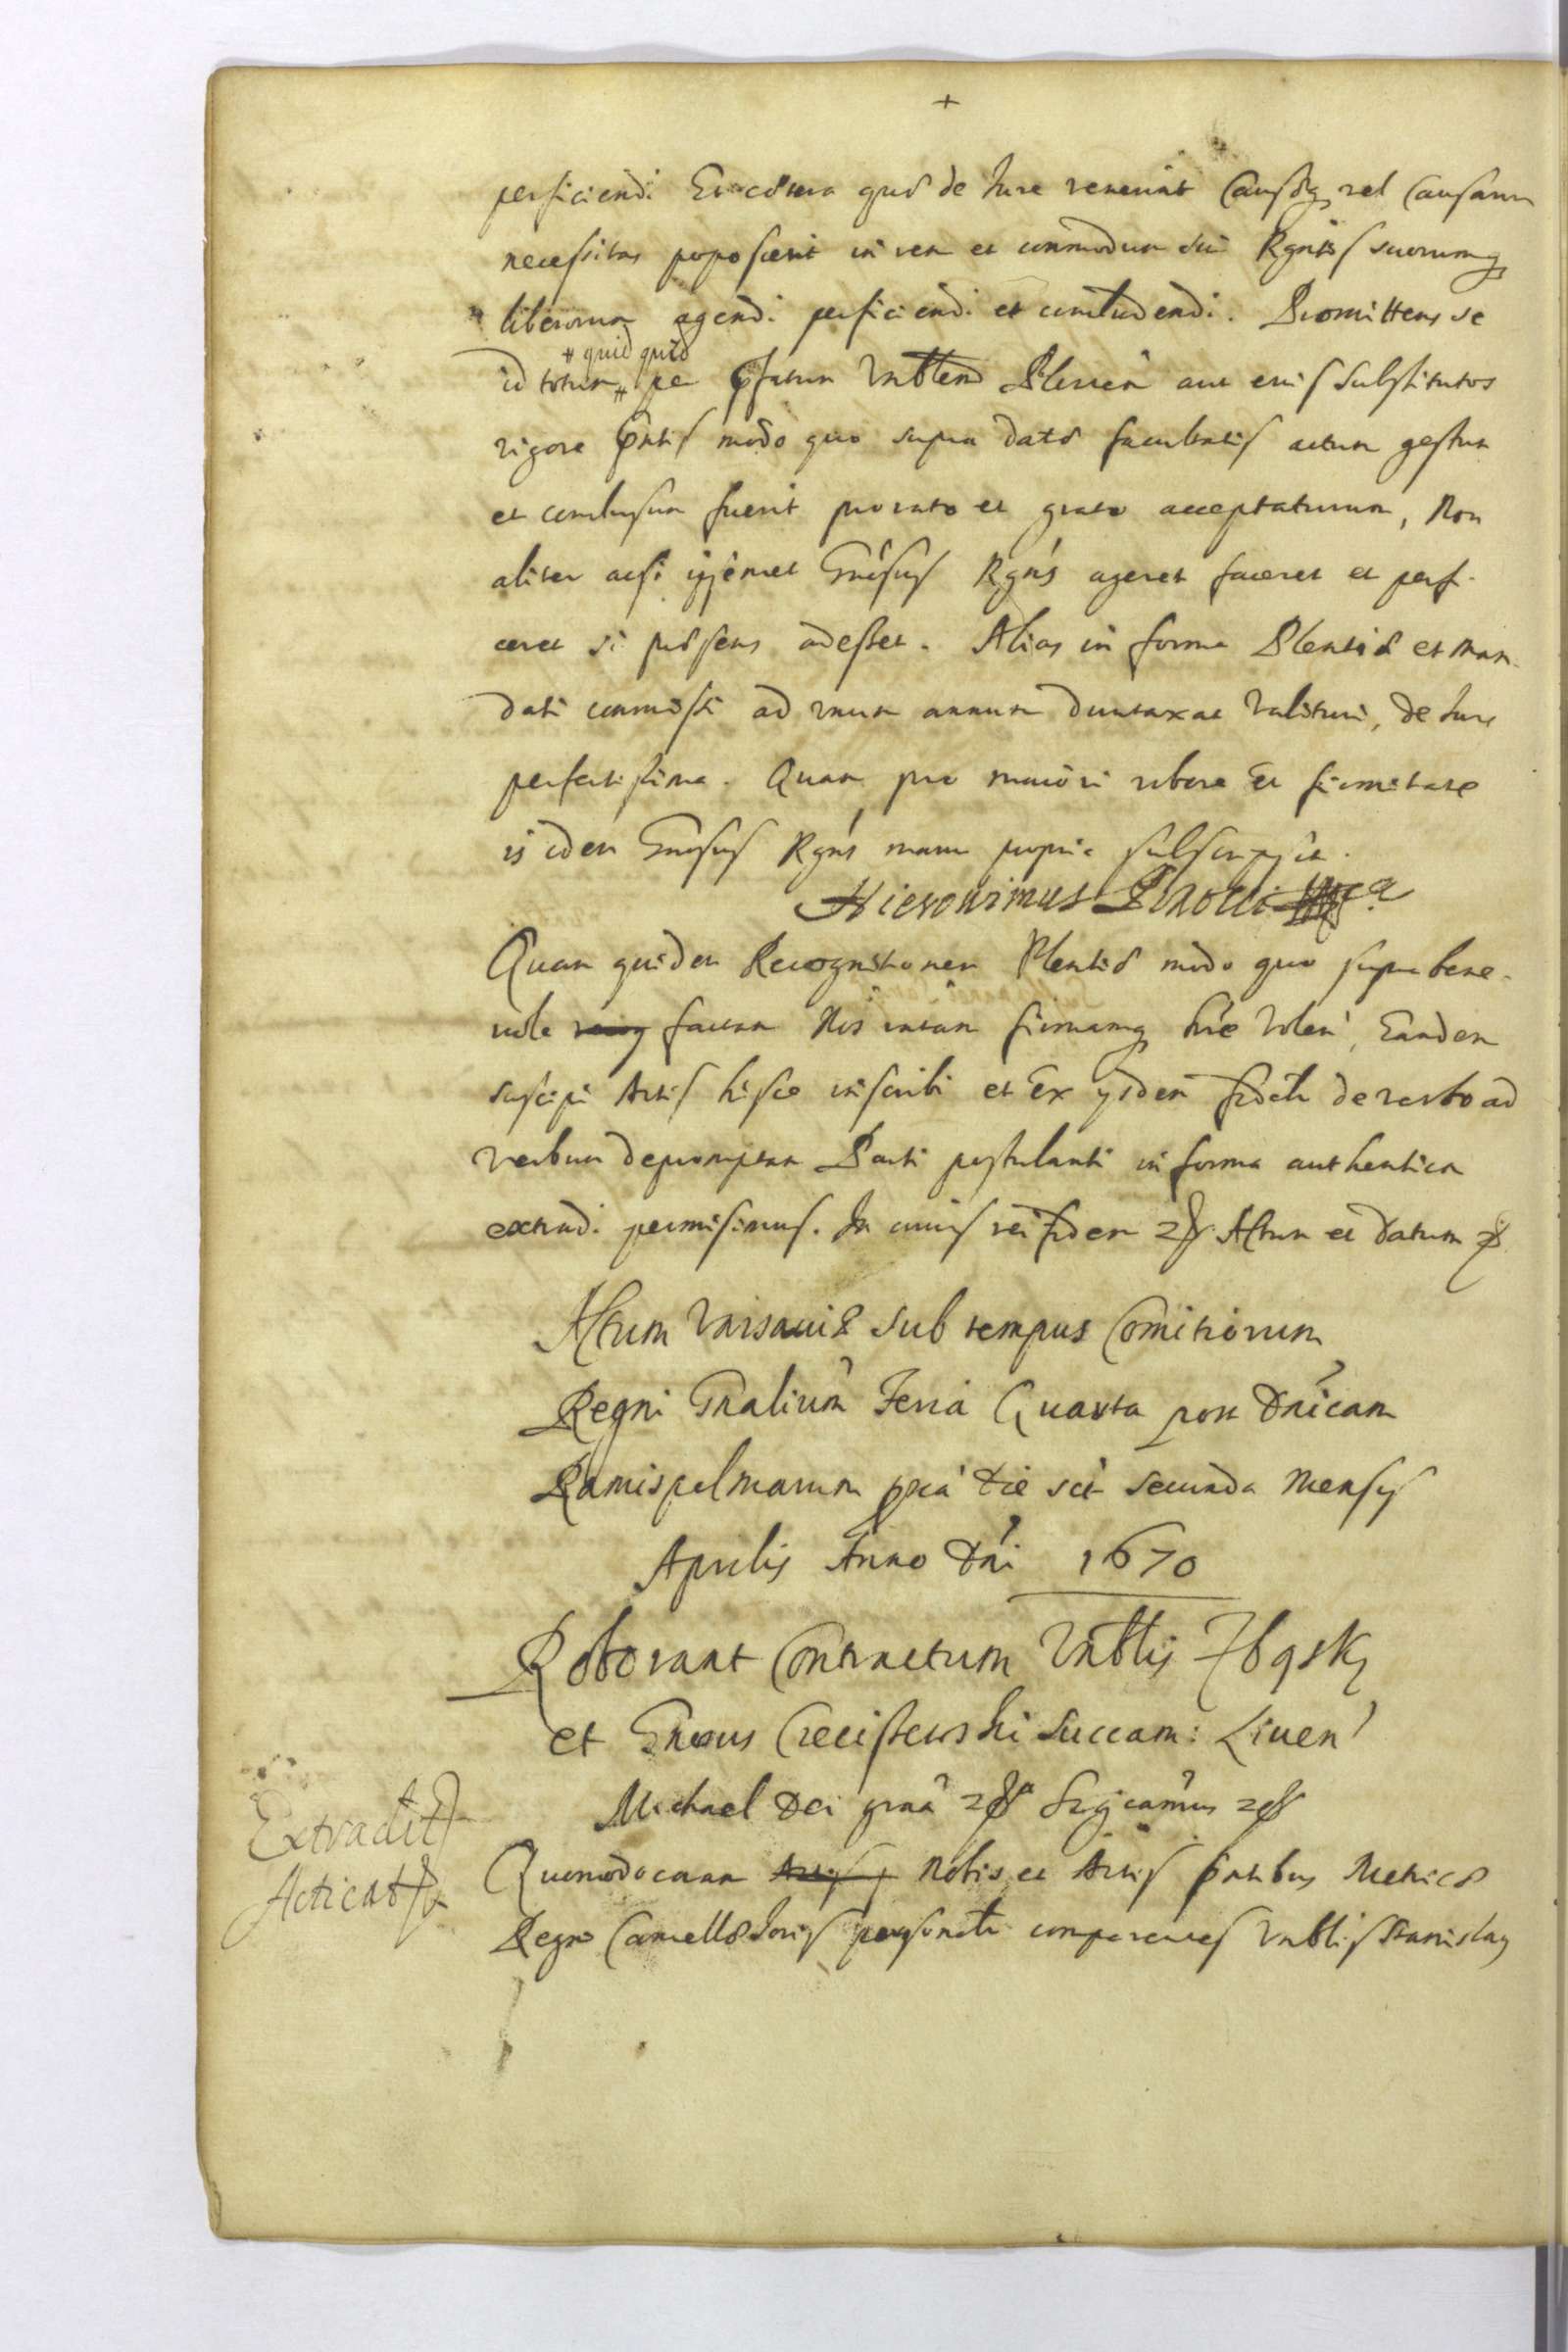 +
perficiendi Et cætera quæ de Jure venerint Causæq vel Causarum
necessitas poposcerit in rem et commodum sui Rgntis suorumq
liberorum agendi perficiendi et concludendi. Promittens se
# quid quid
id totum # per pfatum Vnblem Plenrem aut eius substitutos
vigore pntis modo quo supra datæ facultatis actum gestum
et conclusum fuerit pro rato et grato acceptaturum, Non
aliter acsi ipsemet Gnésus Rgns ageret faceret et perfi-
ceret si præsens adesset. Alias in forma Plentiæ et man-
dati commissi ad vnum annum duntaxat valituri, de Jure
perfectissima. Quam pro maiori robore Et firmitate
is idem Gnosus Rgns manu propria subscripsit.
Hieronimus Pinocci
Quam quidem Recognitionem Plentiæ modo quo supra bene-
uole factam Nos ratam firmamq hre volen, Eandem
suscipi Actis hisce inscribi et Ex ysdem fideli de verbo ad
verbum depromptam Parti postulanti in forma authentica
extradi permisimus. In cuius rei fidem Actum et Datum
Actum Varsauiæ sub tempus Comitiorum
Regni Gnalium Feria Quarta post Dnicam
Ramispalmarum pria die sct secunda Mensis
Aprilis Anno Dni 1670
Roborant Contractum Vnblis Zbąsky
et Gnosus Creeistewski Succam: Liuen
Michael Dei graa Sigcamus
Quomodo coram Nobis et Actis pntibus Metricæ
Regni Cancellæ Joris personalr comparentes Vnblis Stanislaus
Extradit
Acticat